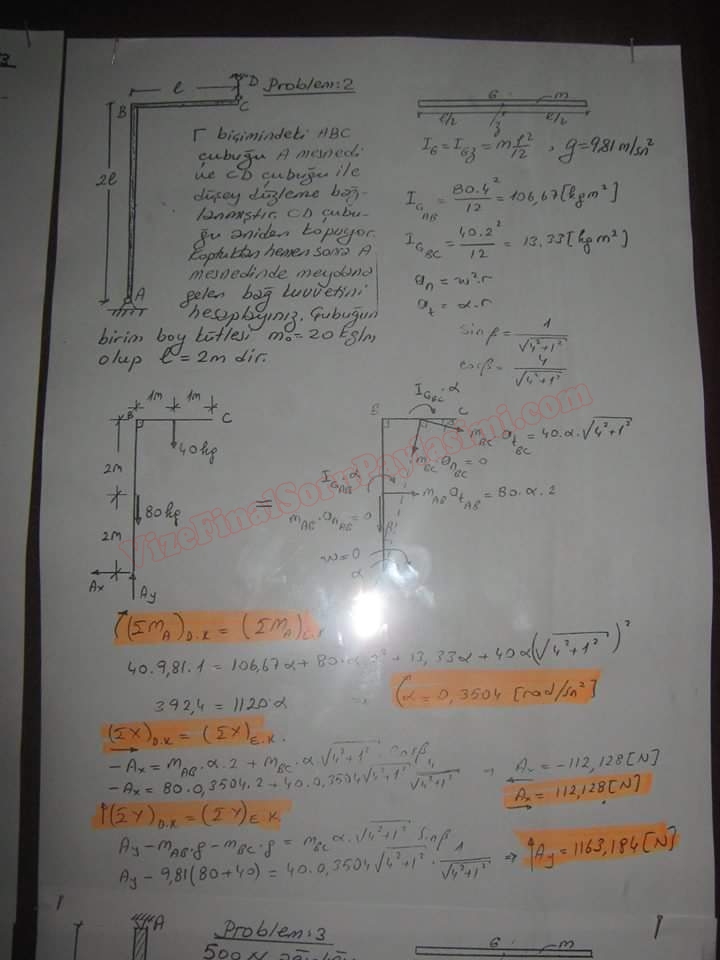 Problem:2
l
D
B
C
2l
A
Γ biçimindeki ABC
çubuğu A mesnedi
ve CD çubuğu ile
düşey düzleme bağ-
lanmıştır. CD çubu-
ğu aniden kopuyor.
Koptuktan hemen sonra A
mesnedinde meydana
gelen bağ kuvvetini
hesaplayınız. Çubuğun
birim boy kütlesi m₀=20 kg/m
olup l=2m dir.
G m
l/2 z l/2
I_G = I_Gz = m l²/12 , g=9,81 m/sn²
I_G_AB = 80.4²/12 = 106,67 [kgm²]
I_G_BC = 40.2²/12 = 13,33 [kgm²]
a_n = w².r
a_t = α.r
sinβ = 1/√(4²+1²)
cosβ = 4/√(4²+1²)
1m 1m
B C
40kg
2m
80kg
2m
Ax
Ay
=
I_G_BC.α
B C
m_BC.a_t_BC = 40.α.√(4²+1²)
m_BC.a_n_BC = 0
I_G_AB.α
m_AB.a_t_AB = 80.α.2
m_AB.a_n_AB = 0
β
w=0
α
(ΣM_A)_D.K = (ΣM_A)_E.K
40.9,81.1 = 106,67α + 80.α.2² + 13,33α + 40α(√(4²+1²))²
392,4 = 1120.α → α = 0,3504 [rad/sn²]
(ΣX)_D.K = (ΣX)_E.K.
-Ax = m_AB.α.2 + m_BC.α.√(4²+1²) cosβ
-Ax = 80.0,3504.2 + 40.0,3504√(4²+1²) 4/√(4²+1²) → Ax = -112,128 [N]
Ax = 112,128 [N]
↑(ΣY)_D.K = (ΣY)_E.K.
Ay - m_AB.g - m_BC.g = m_BC α.√(4²+1²) sinβ
Ay - 9,81(80+40) = 40.0,3504√(4²+1²) . 1/√(4²+1²) ⇒ Ay = 1163,184 [N]
VizeFinalSoruPaylasimi.com
A
Problem:3
G m
500 N